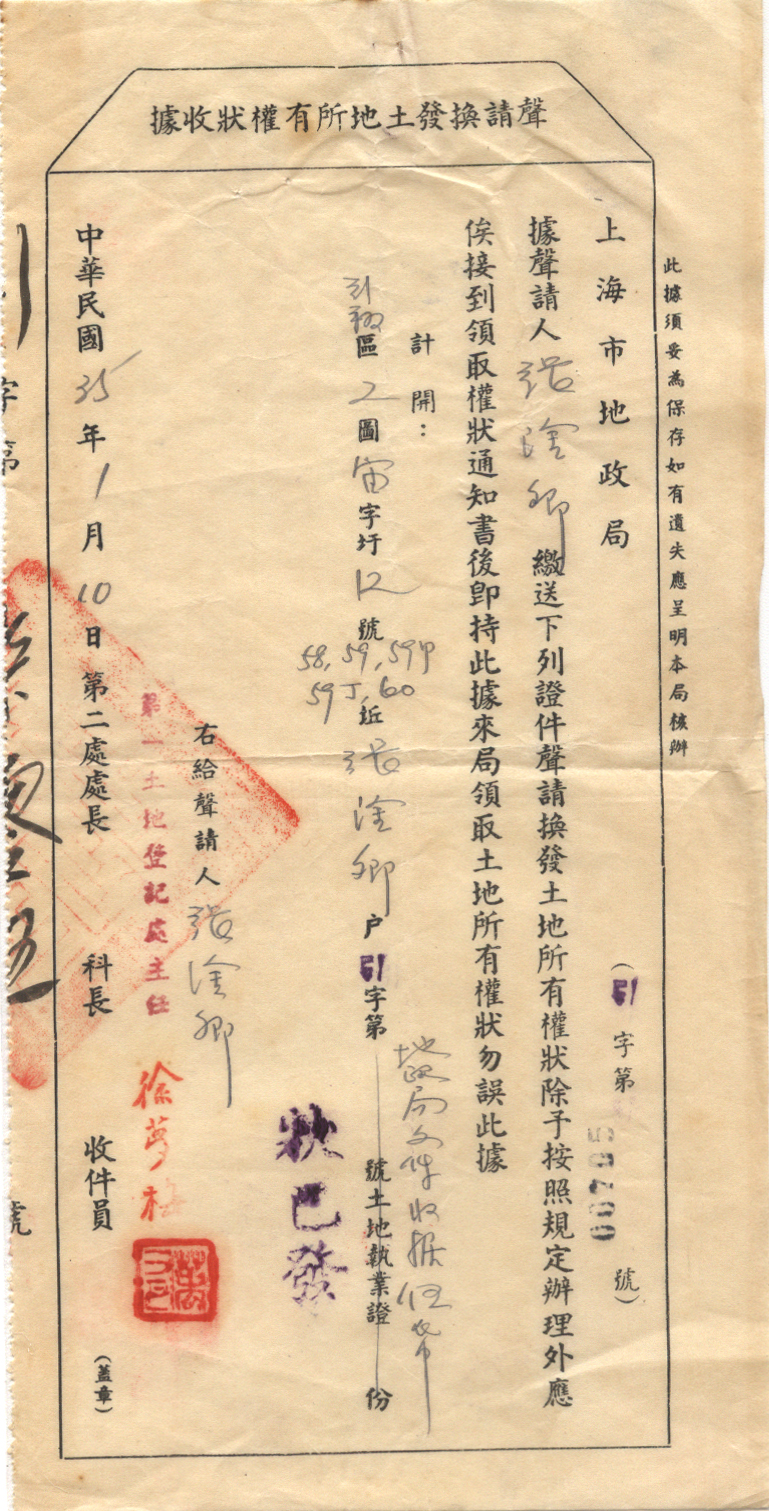 聲請換發土地所有權狀收據
此據須妥為保存如有遺失應呈明本局核辦
(引字第00705號)
上海市地政局
據聲請人張淦卿繳送下列證件聲請換發土地所有權狀除予按照規定辦理外應
俟接到領取權狀通知書後卽持此據來局領取土地所有權狀勿誤此據
計開：
引翔區2圖宙字圩12號58,59,59甲59丁,60坵張淦卿户引字第號土地執業證份
地政局文件收據伍帋
狀已發
右給聲請人張淦卿
第一土地登記處主任徐夢梅
中華民國35年1月10日第二處處長科長收件員(蓋章)
字第號